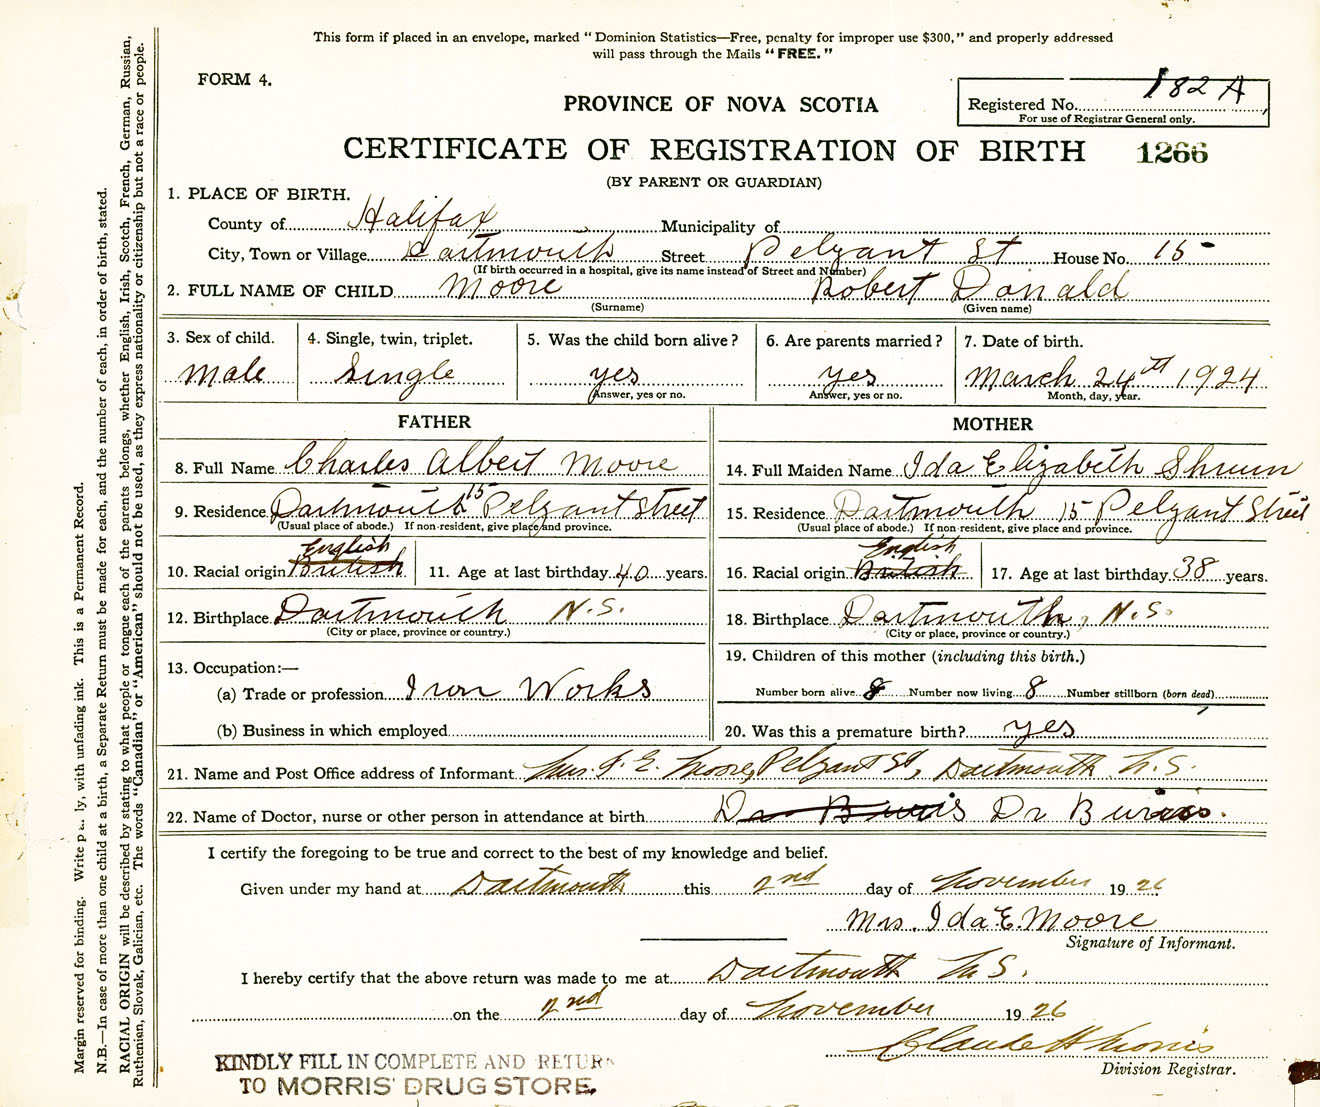 This form if placed in an envelope, marked "Dominion Statistics—Free, penalty for improper use $300," and properly addressed
will pass through the Mails "FREE."
FORM 4.
182 A
PROVINCE OF NOVA SCOTIA
Registered No.
For use of Registrar General only.
CERTIFICATE OF REGISTRATION OF BIRTH 1266
(BY PARENT OR GUARDIAN)
1. PLACE OF BIRTH.
County of Halifax Municipality of
City, Town or Village Dartmouth Street Pelzant St House No. 15
(If birth occurred in a hospital, give its name instead of Street and Number)
2. FULL NAME OF CHILD Moore Robert Donald
(Surname) (Given name)
3. Sex of child. 4. Single, twin, triplet. 5. Was the child born alive? 6. Are parents married? 7. Date of birth.
Male Single yes yes March 24th 1924
Answer, yes or no. Answer, yes or no. Month, day, year.
FATHER MOTHER
8. Full Name Charles Albert Moore 14. Full Maiden Name Ida Elizabeth
9. Residence Dartmouth 15 Pelzant Street 15. Residence Dartmouth 15 Pelzant Street
(Usual place of abode.) If non-resident, give place and province. (Usual place of abode.) If non-resident, give place and province.
English English
10. Racial origin British 11. Age at last birthday 40 years. 16. Racial origin British 17. Age at last birthday 38 years.
12. Birthplace Dartmouth N.S. 18. Birthplace Dartmouth, N.S.
(City or place, province or country.) (City or place, province or country.)
13. Occupation:— 19. Children of this mother (including this birth.)
(a) Trade or profession Iron Works Number born alive 8 Number now living 8 Number stillborn (born dead)
(b) Business in which employed 20. Was this a premature birth? yes
21. Name and Post Office address of Informant Mrs. I. E. Moore, Pelzant St, Dartmouth N.S.
22. Name of Doctor, nurse or other person in attendance at birth Dr Burris Dr Burris.
I certify the foregoing to be true and correct to the best of my knowledge and belief.
Given under my hand at Dartmouth this 2nd day of November 1926
Mrs. Ida E. Moore
Signature of Informant.
I hereby certify that the above return was made to me at Dartmouth N.S.
on the 2nd day of November 1926
Claude H Morris
Division Registrar.
KINDLY FILL IN COMPLETE AND RETURN
TO MORRIS' DRUG STORE.
Margin reserved for binding. Write ly, with unfading ink. This is a Permanent Record.
N.B.—In case of more than one child at a birth, a Separate Return must be made for each, and the number of each, in order of birth, stated.
RACIAL ORIGIN will be described by stating to what people or tongue each of the parents belongs, whether English, Irish, Scotch, French, German, Russian,
Ruthenian, Slovak, Galician, etc. The words "Canadian" or "American" should not be used, as they express nationality or citizenship but not a race or people.